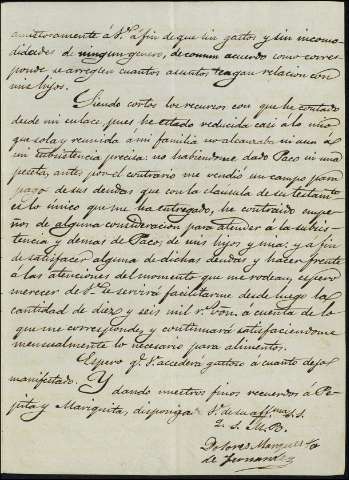 amistosamente á V. á fin de que sin gastos y sin incomo
didades de ningun genero, de comun acuerdo como corres
ponde se arreglen cuantos asuntos tengan relacion con
mis hijos.
Siendo cortos los recursos con que he contado
desde mi enlace, pues he estado reducida casi á lo mio
que sola y reunida á mi familia no alcanzaba ni aun á
mi subsistencia precisa: no habiendome dado Paco ni una
peseta, antes por el contrario me vendió un campo para
pago de sus deudas que con la clausula de su testamto
és lo unico que me ha entregado, he contraido empe
ños de alguna consideracion para atender a la subsis
tencia y demas de Paco, de mis hijos y mia: y á fin
de satisfacer alguna de dichas deudas y hacer frente
á las atenciones del momento que me rodean, espero
merecer de V. se servirá facilitarme desde luego la
cantidad de diez y seis mil rs. von. a cuenta de lo
que me corresponde, y continuará satisfaciendome
mensualmente lo necesario para alimentos.
Espero q. V. accederá gustoso á cuanto dejo
manifestado. Y
dando nuestros finos recuerdos á Pe
pita y Mariquita, disponga V. de su affma. S. S.
Q. S. M. B.
Dolores Marques
de Fernandez